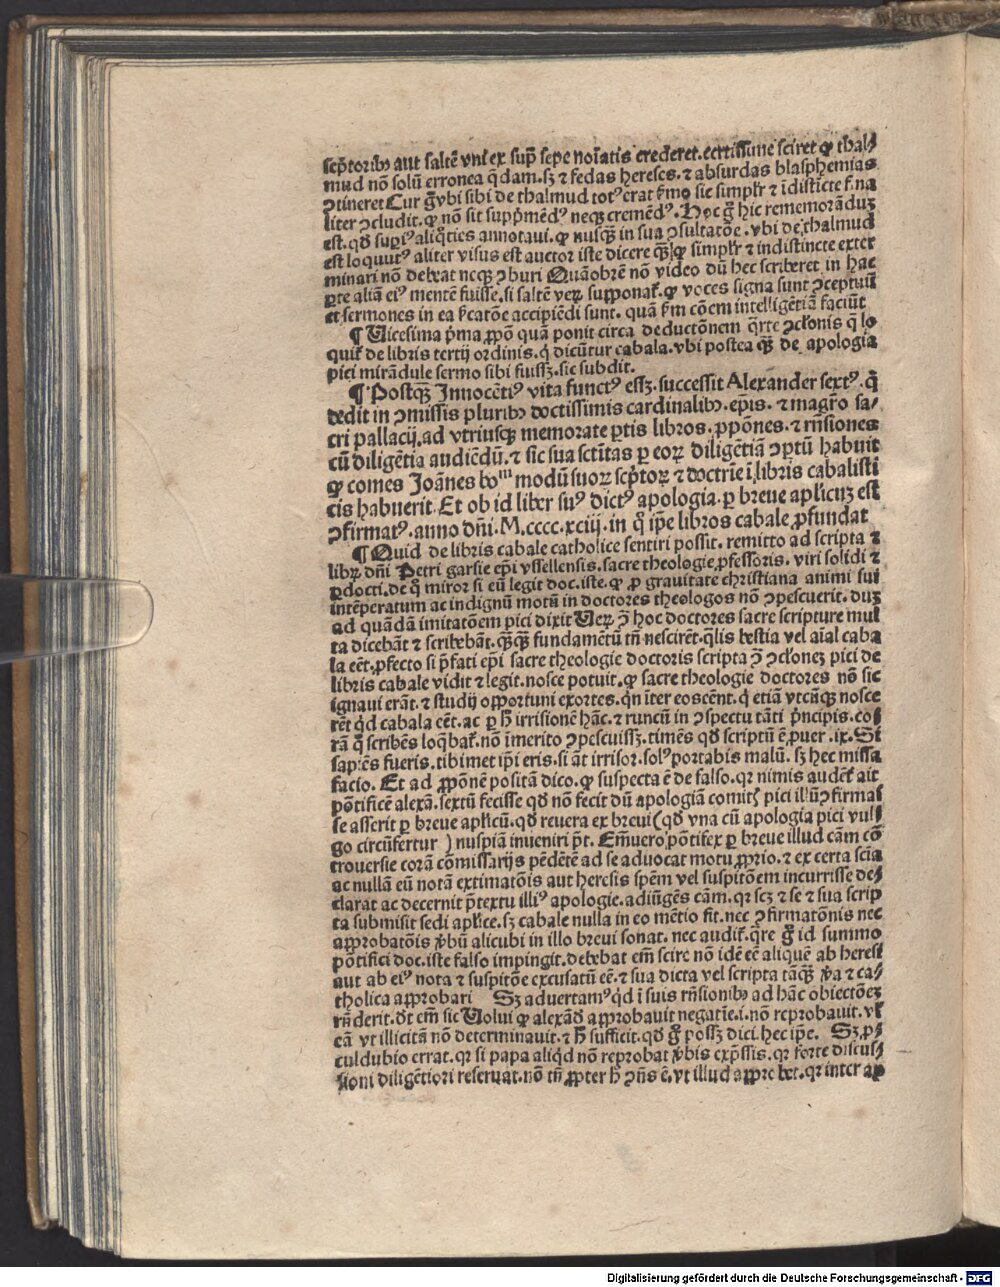 scp̄toribꝰ aut saltē vni ex sup̄ sepe noīatis crederet. certissime sciret ꝙ thal⸗
mud nō solū erronea q̄dam. sꝫ ⁊ fedas hereses. ⁊ absurdas blasphemias
ꝯtineret Cur g̊ vbi sibi de thalmud totꝰ erat ẜmo sic simplr̄ ⁊ īdistīcte f̄na
liter ꝯcludit. ꝙ nō sit supp̄mēdꝰ neqꝫ cremēdꝰ. Hoc g̊ hic rememorāduꝫ
est. qd̄ suꝑiꝰ aliq̊ties annotaui. ꝙ nusqꝫ̄ in sua ꝯsultatōe. vbi de thalmud
est loquutꝰ aliter visus est auctor iste dicere qꝫ̄ ꝙ simplr̄ ⁊ indistincte exter
minari nō debeat neqꝫ ꝯburi Quāobrē nō video dū hec scriberet in hac
ꝑte aliā eiꝰ mentē fuisse. si saltē veꝝ supponat᷑. ꝙ voces signa sunt ꝯceptuū
et sermones in ea ẜcatōe accipiēdi sunt. quā ẜm cōem intelligētiā faciūt
¶ Uicesima p̄ma ꝓpō quā ponit circa deductōnem q̄rte ꝯcl̄onis q̄ lo
quit᷑ de libris tertij ordinis. q̇ dicūtur cabala. vbi postea qꝫ̄ de apologia
pici mirādule sermo sibi fuissꝫ. sic subdit.
¶ Postqꝫ̄ Innocētiꝰ vita functꝰ essꝫ. successit Alexander sextꝰ. q̇
dedit in ꝯmissis pluribꝰ doctissimis cardinalibꝰ. ep̄is. ⁊ magr̄o sa⸗
cri pallacij, ad vtriusqꝫ memorate ꝑtis libros. ꝓpōnes. ⁊ rn̄siones
cū diligētia audiēdū. ⁊ sic sua sctītas ꝑ eoꝝ diligētiā ꝯptū habuit
ꝙ comes Joānes boᵐ modū suoꝝ scp̄toꝝ ⁊ doctrīe ī libris cabalisti
cis habuerit. Et ob id liber suꝰ dictꝰ apologia. ꝑ breue apl̄icuꝫ est
ꝯfirmatꝰ. anno dn̄i. M.cccc.xciij. in q̊ ip̄e libros cabale ꝓfundat
¶ Quid de libris cabale catholice sentiri possit. remitto ad scripta ⁊
libꝝ dn̄i Petri garsie ep̄i vssellensis. sacre theologie ꝓfessoris. viri solidi ⁊
ꝑdocti. de q̊ miror si eū legit doc. iste. ꝙ ꝓ grauitate christiana animi sui
intēperatum ac indignū motū in doctores theologos nō ꝯpescuerit. duꝫ
ad quādā imitatōem pici dixit Ueꝝ ꝯ̄ hoc doctores sacre scripture mul
ta dicebāt ⁊ scribebāt. qꝫ̄qꝫ̄ fundamētū tn̄ nescirēt. q̄lis bestia vel aīal caba
la eēt. ꝓfecto si p̄fati ep̄i sacre theologie doctoris scripta ꝯ̄ ꝯcl̄oneꝫ pici de
libris cabale vidit ⁊ legit. nosce potuit. ꝙ sacre theologie doctores nō sic
ignaui erāt. ⁊ studij opportuni exortes. qn̄ īter eos cēnt. q̇ etiā vtcūqꝫ nosce
rēt qd̄ cabala eēt. ac ꝑ h̄ irrisionē hāc. ⁊ runcū in ꝯspectu tāti p̄ncipis. co⸗
rā q̊ scribēs loq̄bat᷑. nō īmerito ꝯpescuissꝫ. timēs qd̄ scriptū ē ꝓuer. ix. Si
sapiēs fueris. tibimet ip̄i eris. si āt irrisor. solꝰ portabis malū. sꝫ hec missa
facio. Et ad ꝓpōnē positā dico. ꝙ suspecta ē de falso. qꝛ nimis audēt᷑ ait
pōtificē alexā. sextū fecisse qd̄ nō fecit dū apologiā comitꝭ pici illū ꝯfirmas
se asserit ꝑ breue apl̄icū. qd̄ reuera ex breui (qd̄ vna cū apologia pici vul
go circūfertur ) nuspiā inueniri pt̄. Em̄uero pōtifex ꝑ breue illud cām cō
trouersie corā cōmissarijs pēdētē ad se aduocat motu ꝓprio. ⁊ ex certa scīa
ac nullā eū notā extimatōis aut heresis spēm vel suspitōem incurrisse de⸗
clarat ac decernit p̄textu illiꝰ apologie. adiūgēs cām. qꝛ scꝫ ⁊ se ⁊ sua scrip
ta submisit sedi apl̄ice. sꝫ cabale nulla in eo mētio fit. nec ꝯfirmatōnis nec
approbatōis v̄bū alicubi in illo breui sonat. nec audit᷑. q̄re g̊ id summo
pōtifici doc. iste falso impingit. debebat em̄ scire nō idē eē aliquē ab heresi
aut ab eiꝰ nota ⁊ suspitōe excusatū eē. ⁊ sua dicta vel scripta tāqꝫ̄ v̄a ⁊ ca⸗
tholica approbari Sꝫ aduertamꝰ qd̄ ī suis rn̄sionibꝰ ad hāc obiectōeꝫ
rn̄derit. dt̄ em̄ sic Uolui ꝙ alexād̄ approbauit negatīe. i. nō reprobauit. vl̄
eā vt illicitā nō determinauit. ⁊ h̄ sufficit. qd̄ g̊ possꝫ dici. hec ip̄e. Sꝫ ꝓ⸗
culdubio errat. qꝛ si papa aliqd̄ nō reprobat v̄bis exp̄ssis. qꝛ forte discus⸗
sioni diligētiori reseruat. nō tn̄ ꝓpter h̄ ꝯn̄s ē. vt illud approbet. qꝛ inter ap
Digitalisierung gefördert durch die Deutsche Forschungsgemeinschaft - DFG